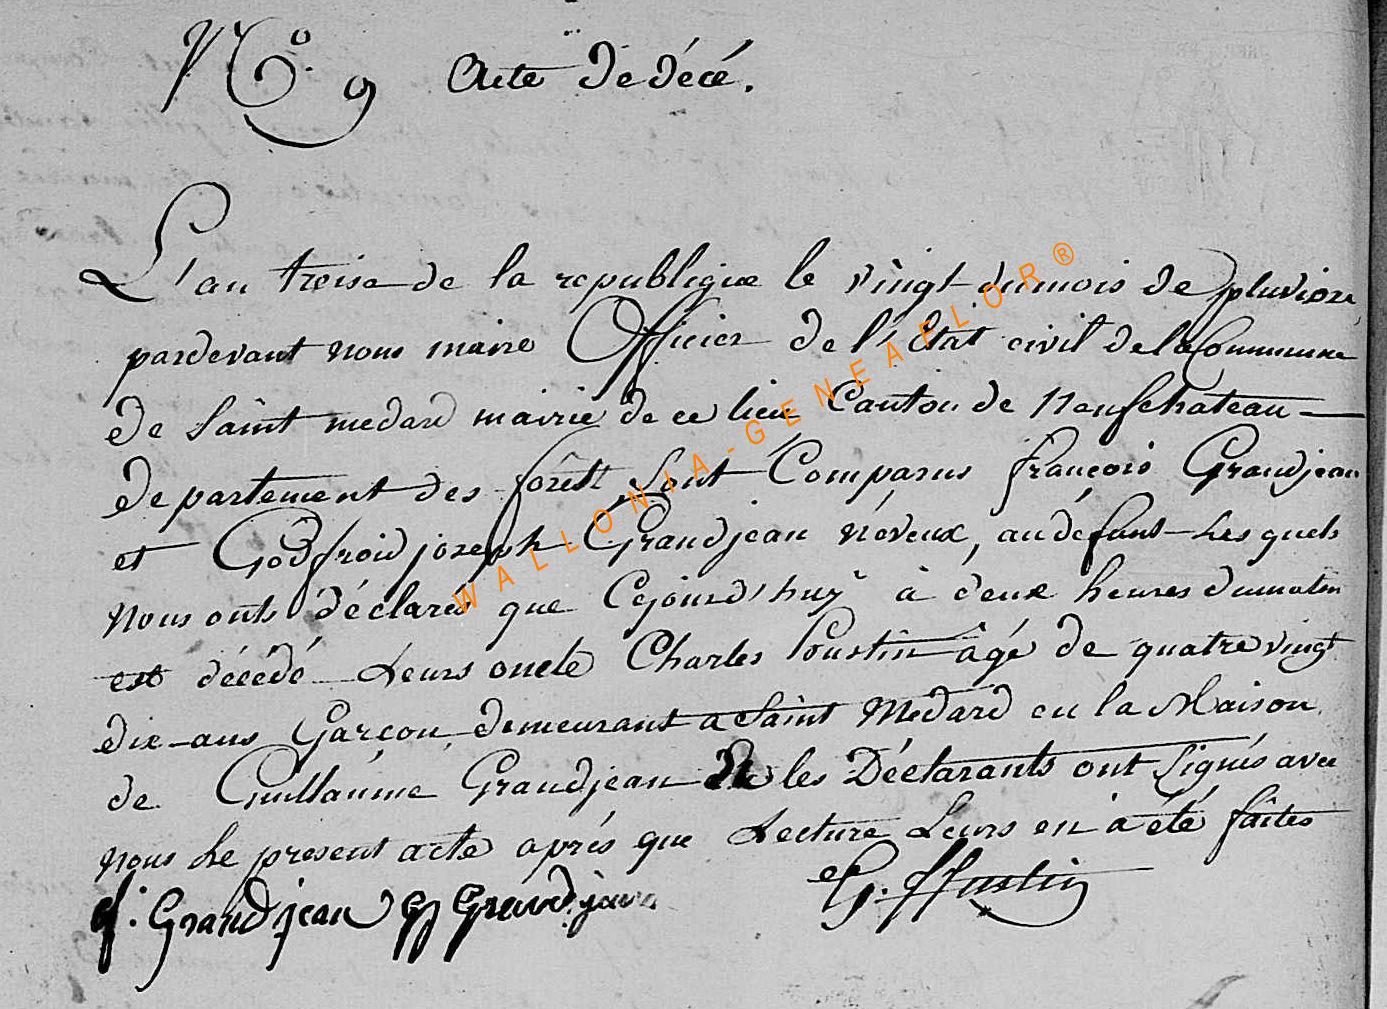 N.º 9 Acte de décé.
L'an treise de la republique le vingt du mois de pluviose
pardevant nous maire Officier de l'Etat civil de la Commune
de saint medard mairie de ce lieu Canton de Neufchateau
departement des forêtt sont Comparus françois Grandjean
et Godfroid joseph Grandjean néveux, au défunt Les quels
nous onts déclarés que Cejourd'huy à deux heures du matin
est décédé Leurs oncle Charles agé de quatre vingt
dix ans Garçon demeurant a Saint Médard en la Maison
de Guillaume Grandjean les Déclarants ont signés avec
nous Le present acte aprés que Lecture Leurs en a été faites
f. Grandjean GJ Grandjean
WALLONIA-GENEAFLOR®